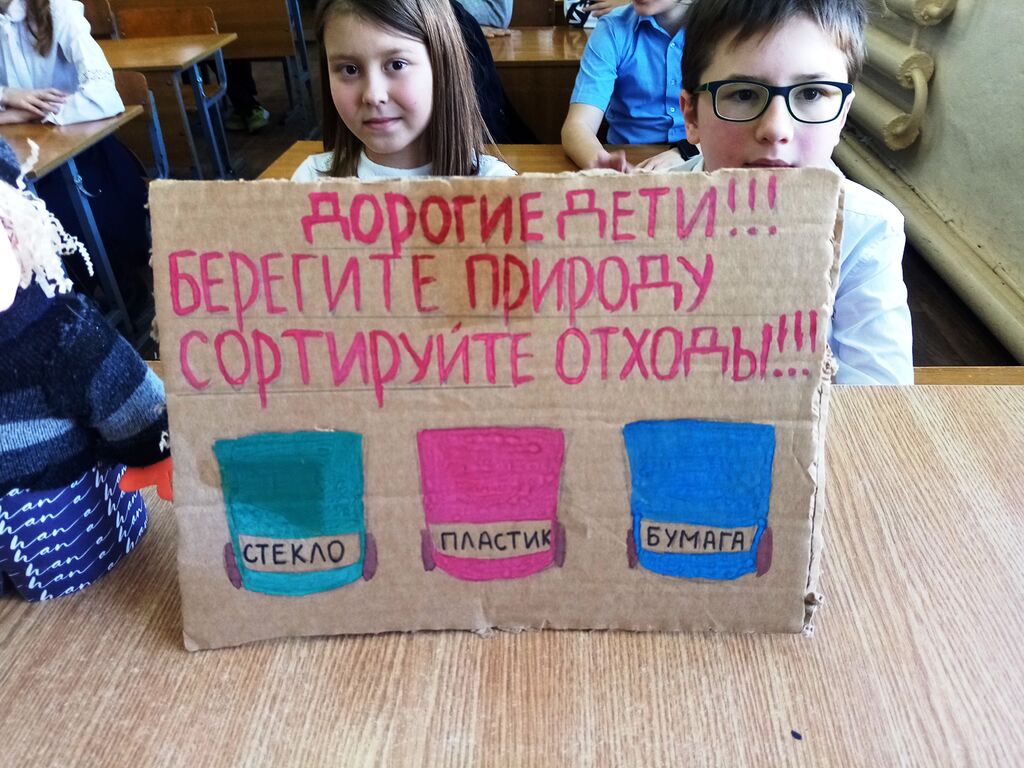 ДОРОГИЕ ДЕТИ!!!
БЕРЕГИТЕ ПРИРОДУ
СОРТИРУЙТЕ ОТХОДЫ!!!
СТЕКЛО
ПЛАСТИК
БУМАГА
han